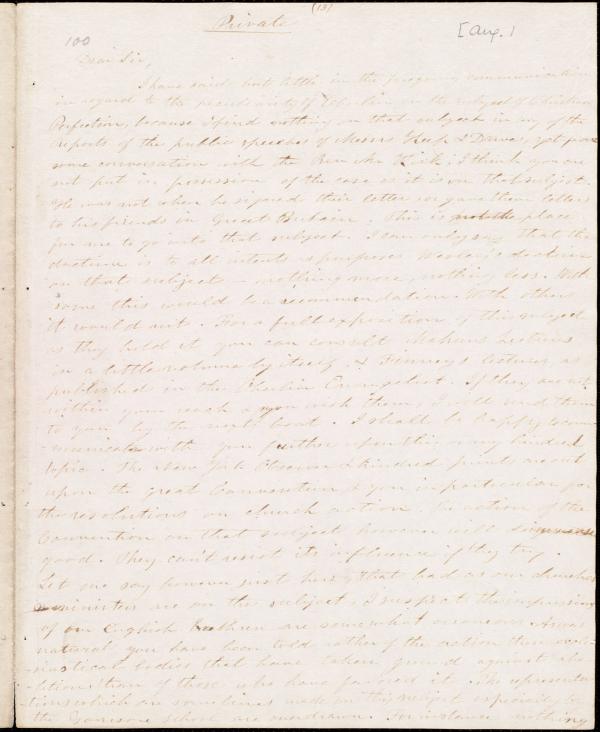 (13)
Private
[Aug.]
100
Dear Sir,
I have said but little in the foregoing communication
in regard to the peculiarity of Oberlin on the subject of Christian
Perfection, because I find nothing on that subject in any of the
reports of the public speeches of Messrs Keep & Dawes, yet from
some conversation with the Rev. John I think you are
not put in possession of the case as it is on that subject.
He was not when he signed their letter or gave them letters
to his friends in Great Britain. This is not the place
for me to go into that subject. I can only say that the
doctrine is to all intents & purposes Wesley's doctrine
on that subject - nothing more, nothing less. With
some this would be a recommendation. With others
it would not. For a full exposition of this subject
as they hold it you can consult Mahan's Lectures
in a little volume by itself, & Finney's lectures, as
published in the Oberlin Evangelist. If they are not
within your reach & you wish them, I will send them
to you by the next boat. I shall be happy to com-
municate with you further upon this or any kindred
topic. The New York Observer & kindred prints are out
upon the great Convention & you in particular for
the resolutions on church action. The action of the
Convention on that subject however will do immense
good. They can't resist its influence if they try.
Let me say however just here, that bad as our churches
& ministers are on the subject, I suspect the impressions
of our English brethren are somewhat erroneous. As was
natural you have been told rather of the action those eccle-
siastical bodies that have taken ground against abo-
lition than of those who have favored it. The representa-
tions which are sometimes made on this subject especially by
the Garrison school are overdrawn. For instance nothing